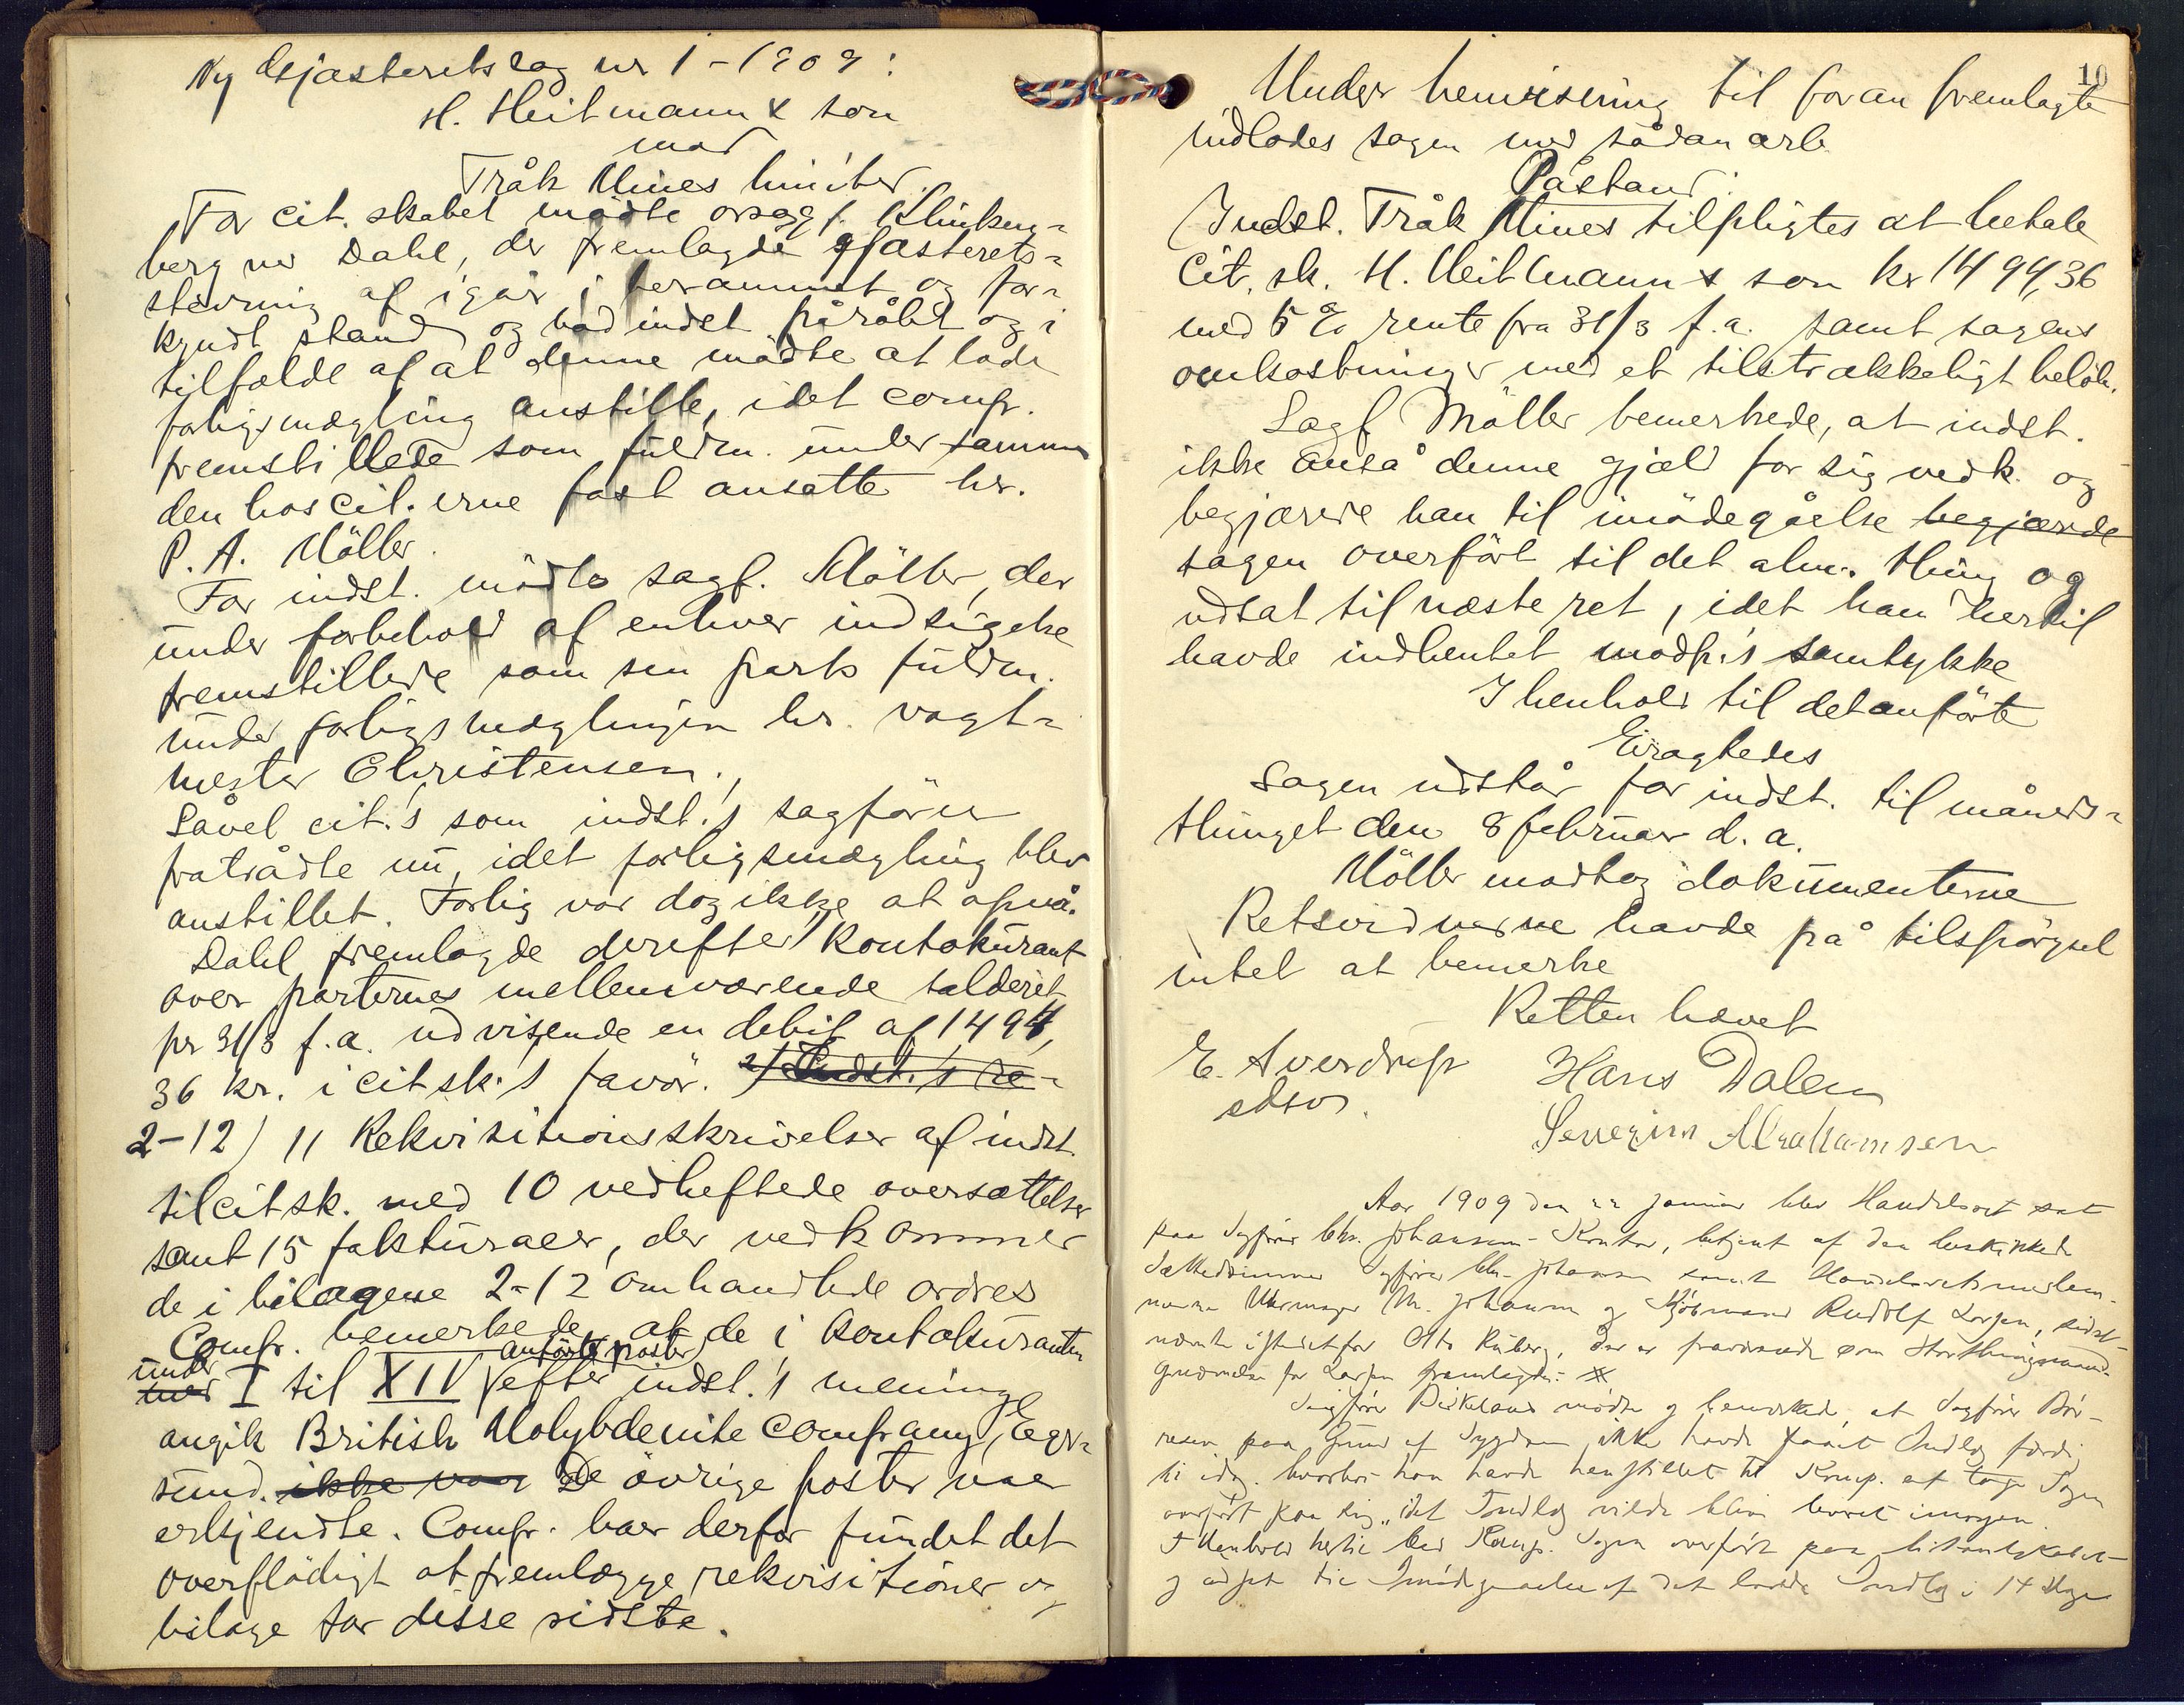 Ny Gjæsteretssag nr 1 - 1909:
H. Heitmann & søn
mod
Tråk Mines limiter
For cit. skabet mødte orsagf. Klinken-
berg ved Dahl, der fremlagde gjæsterets-
stevning af igår i berammet og for-
kyndt stand og bad indst. påråbt og i
tilfælde af at denne mødte at lade
forligsmægling anstille, idet comp.
fremstillede som fuldm. under samme
den hos cit.erne fast ansatte hr.
P. A. Møller.
For indst. mødte sagf. Møller, der
under forbehold af enhver indsigelse
fremstillede som sin parts fuldm.
under forligsmæglingen hr. vagt-
mester Christensen.
Såvel cit.'s som indst.'s sagfører
fratrådte nu, idet forligsmægling blev
anstillet. Forlig var dog ikke at opnå.
Dahl fremlagde derefter 1) kontokurant
over parternes mellemværende salderet
pr 31/3 f.a. udvisende en debit af 1494,
36 kr. i citsk.'s favør. 2) Indst.'s re-
2-12) 11 Rekvisitionsskrivelser af indst.
til citsk. med 10 vedheftede oversættelser
samt 15 fakturaer, der vedkommer
de i bilagene 2-12 omhandlede ordres
Comp. bemerkede, at de i kontokuranten
under anførte poster
med I til XIV efter indst.'s mening
angik British Molybdenite Company, Eger-
sund. ikke var De øvrige poster var
erkjendte. Comp. har derfor fundet det
overflødigt at fremlægge rekvisitioner og
bilage for disse sidste.
10
Under henvisning til foran fremlagte
indlodes sagen med sådan ærb.
Påstand:
Indst. Tråk Mines tilpligtes at betale
Cit. sk. H. Heitmann & søn kr 1494,36
med 5 % rente fra 31/3 f.a. samt sagens
omkostninger med et tilstrækkeligt beløb.
Sagf Møller bemerkede, at indst.
ikke anså denne gjæld for sig vedk. og
begjærede han til imødegåelse begjærede
sagen overført til det alm. thing og
udsat til næste ret, idet han hertil
havde indhentet modp.'s samtykke
I henhold til det anførte
Eragtedes
Sagen udstår for indst. til måneds-
thinget den 8 februar d. a.
Møller modtog dokumenterne
Retsvidnerne havde på tilspørgsel
intet at bemerke
Retten hævet
E. Sverdrup Hans Dalen
edsv.
Severin Abrahamsen
Aar 1909 den 22 januar blev Handelsret sat
paa Sagfører Chr. Johansens Kontor, betjent af den beskikkede
Sættedommer Sagfører Chr. Johansen samt Handelsretsmedlem-
merne M. Johansen og Kjøbmand Rudolf Larsen, sidst-
nævnte istedetfor Otto Ruberg, der er fraværende som Storthingsmand.
for Larsen fremlagdes: X
Sagfører Birkeland mødte og bemerkede, at Sagfører Bør-
resen paa Grund af Sygdom ikke havde faaet Indlæg færdig
til idag, hvorfor han havde henstillet til Komp. at tage Sagen
overført paa sig, idet Indlæg vilde blive levert imorgen.
I Henhold hertil bad Komp. Sagen overført paa
og udsat til Imødegaaelse af det Indlæg i 14 Dage